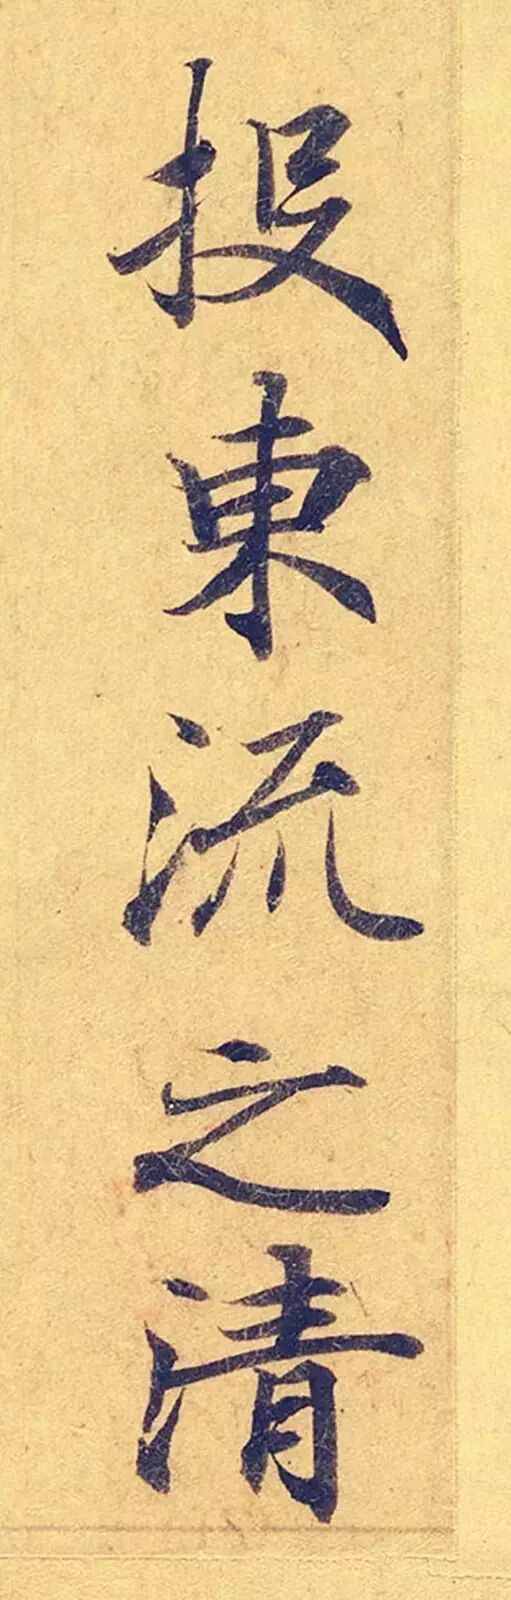 投東流之清